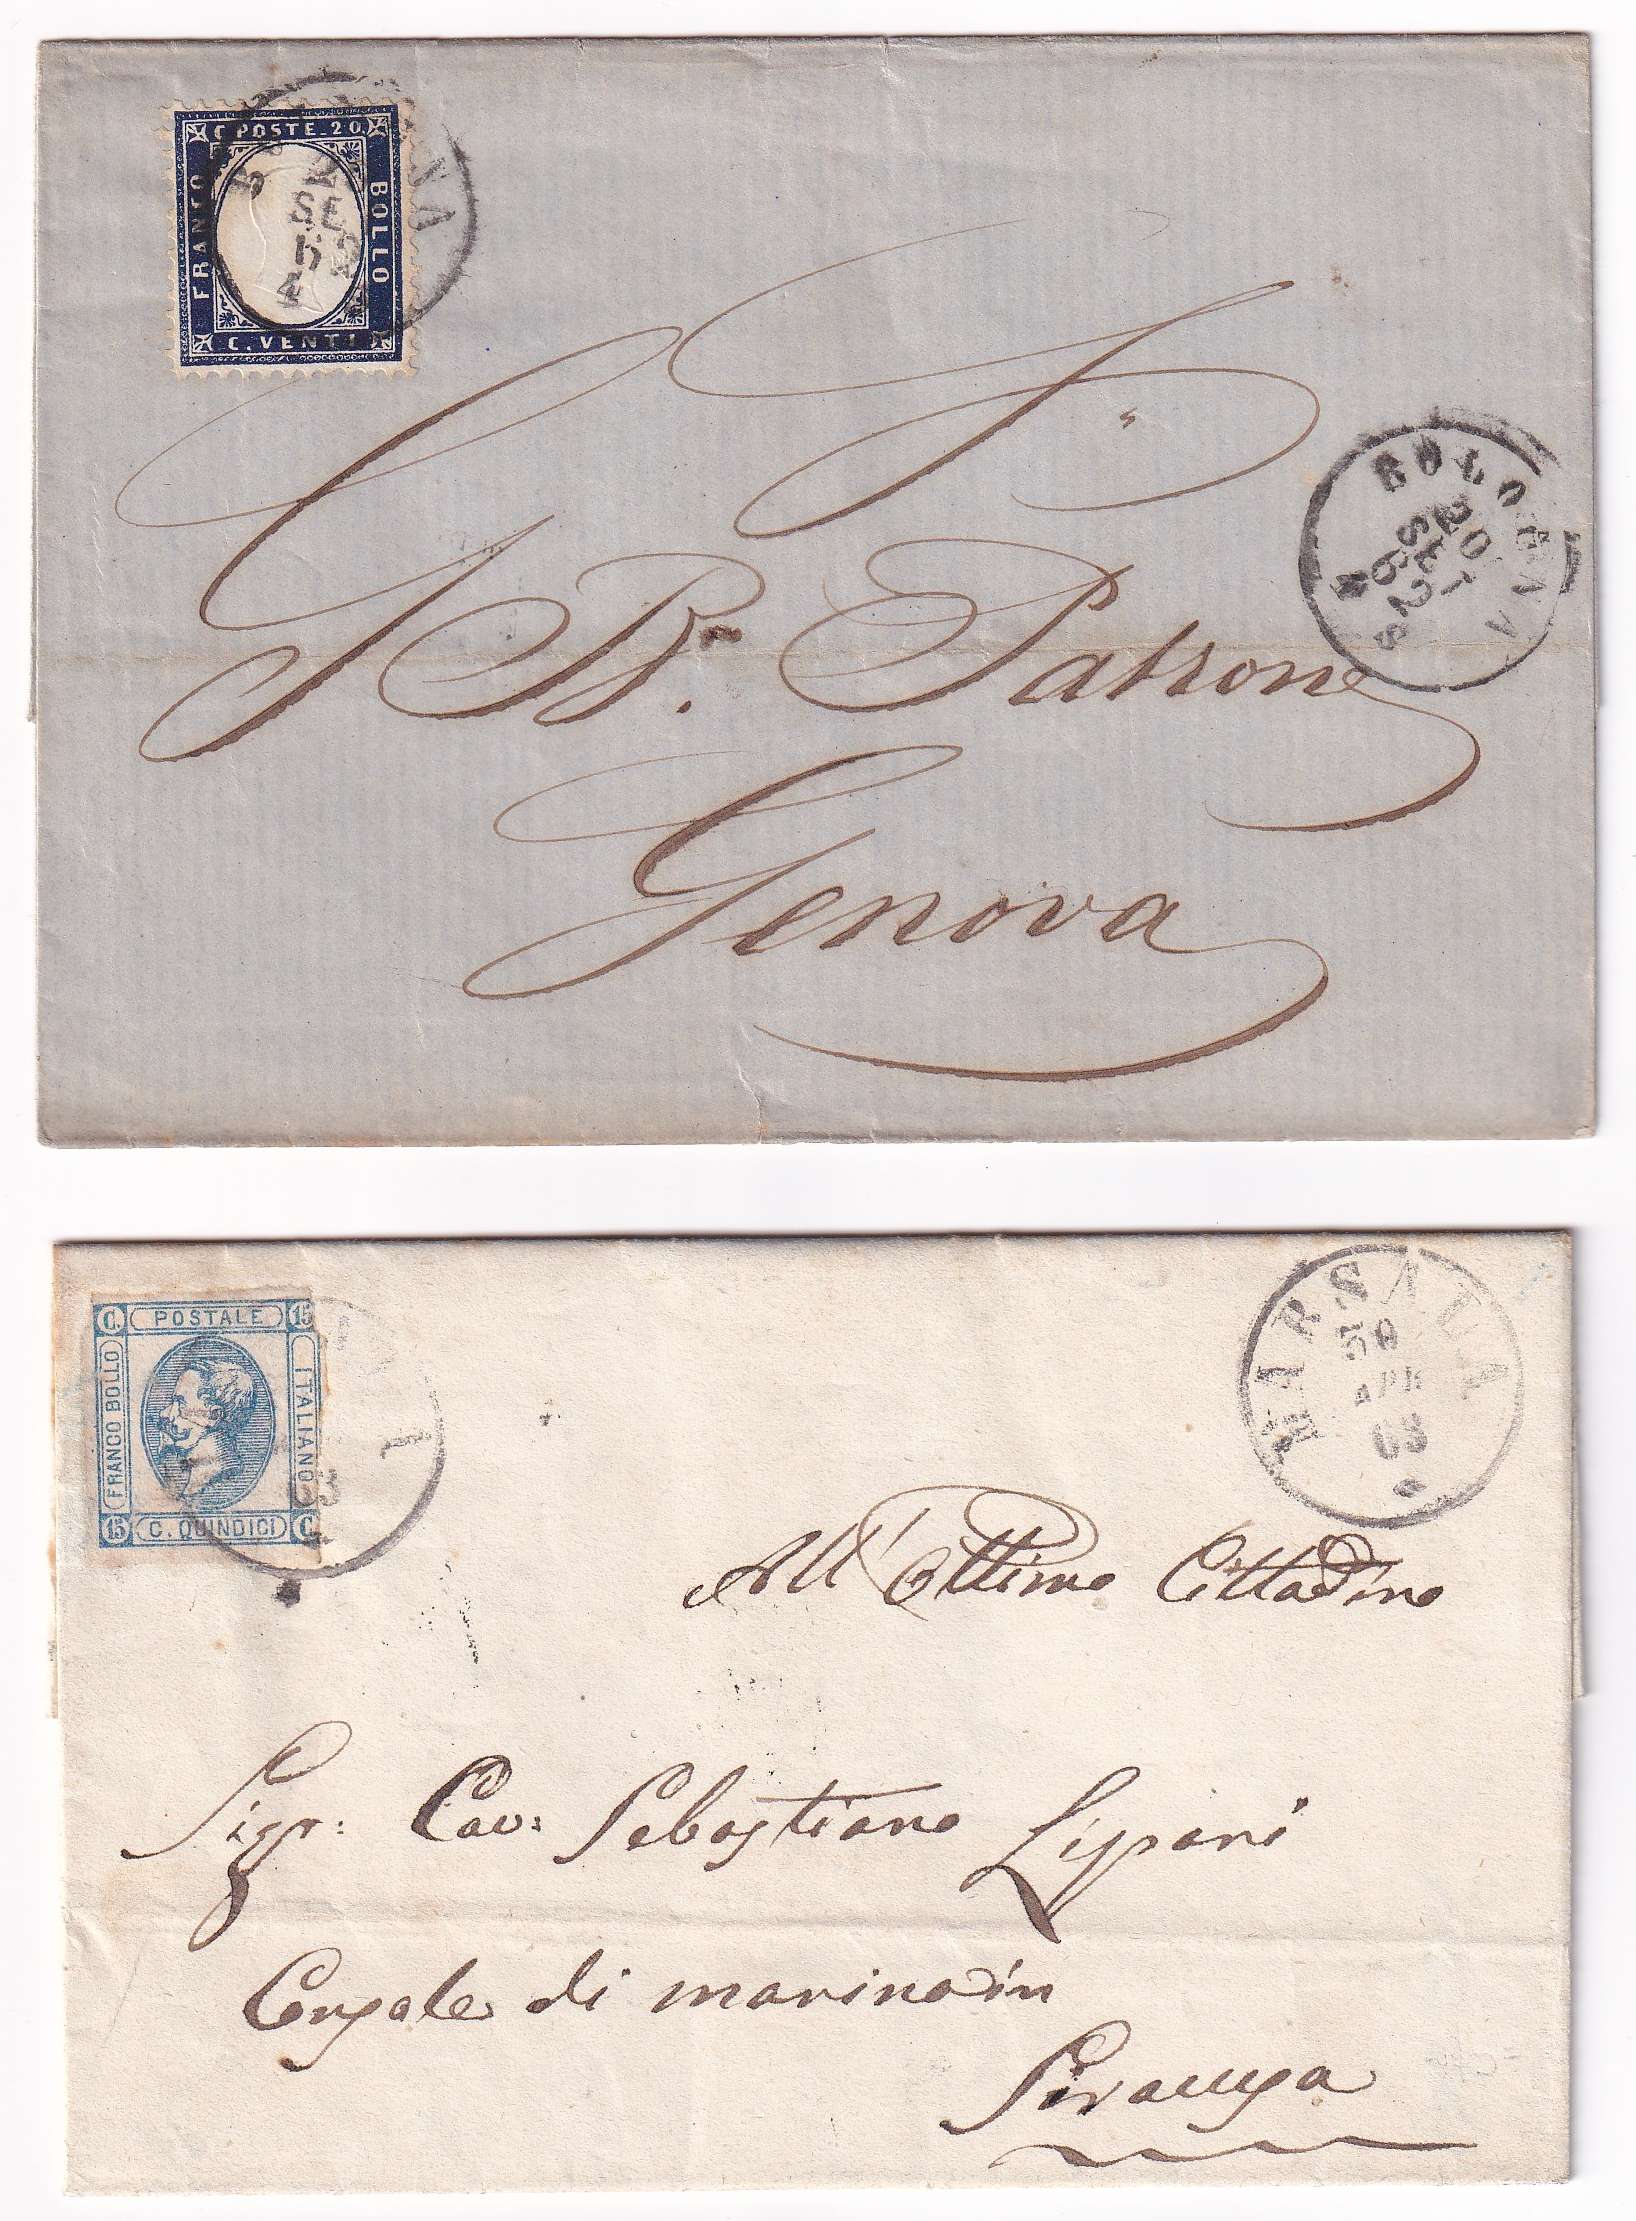 C. POSTE. 20.
FRANCO
BOLLO
C. VENTI
SE
4
BOLOGNA
20
SET
62
4 S
G. B. Patrone
Genova
C. POSTALE 15
FRANCO BOLLO
ITALIANO
15 C. QUINDICI C.
63
MARSALA
30
APR
63
All' Ottimo Cittadino
Sigr: Cav: Sebastiano Lipari
di marina in